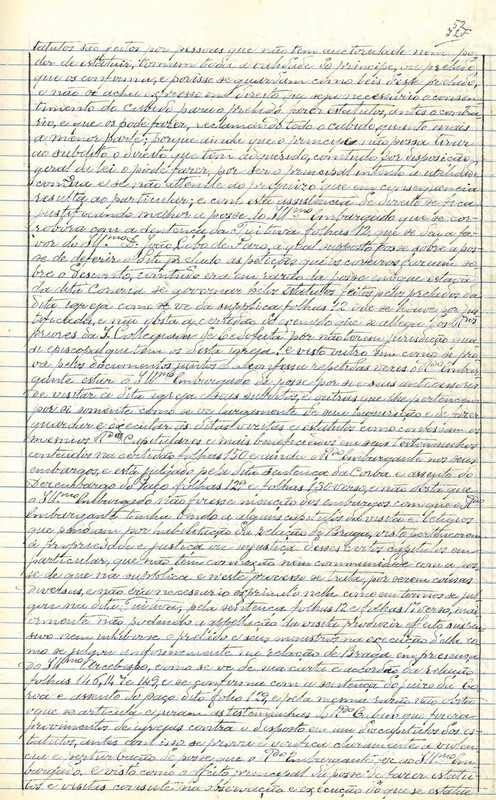 53
tatutos são feitos por pessoas que não tem auctoridade nem po-
der de estatuir, tomam toda a validade do principe, ou prelado
que os confirma, e por isso se guardam como leis deste prelado,
e não se acha expresso em direito que seja necessario o consen-
timento do Cabido para o prelado fazer estatutos, antes o contra-
rio, e que os pode fazer, reclamando todo o cabido quanto mais
a menor parte; porque ainda que o principe não possa tirar
ao subdito o direito que tem adquerido, comtudo por disposição
geral de lei o pode fazer, por ser o principal intento a utilidade
commua e se não attende ao prejuizo que em consequencia
resulta ao particular; e com esta assistencia de direito se fica
justificando melhor a posse do Ill.mo Embargado que se cor-
robora com a sentença da folhas 12, que se deu a fa-
vor do Ill.mo Sr. João Lobo de Faro, a qual suposto fosse sobre a pos-
se de deferir o dito prelado as petições que os conegos faziam so-
bre o comtudo era em razão da posse em que estava
da dita Coraria se governar pelos estatutos feitos pelos prelados da
dita igreja como se ve da supplica folhas 12 onde se houve por
e não obsta a certidão do exemplo que se allega dos
priores da I. Collegiada de Cedofeita por não terem jurisdição qua-
si episcopal que tem os desta igreja. E visto outro sim como se pro-
va pelos documentos juntos e confissa repetidas vezes do R.do Embar-
gante estar o Ill.mo Embargado de posse por si e seus antecessores
de visitar a dita igreja e seus subditos, e outras que lhe pertencem
por si somente como se ve largamente do que requereu e de fazer
guardar e executar as ditas visitas e estatutos como confessam os
mesmos R.dos Capitulares e mais beneficiados em seus testemunhos
conteudos na certidão folhas 130 e ainda o R.do Embargante nos seus
embargos, e está julgado pela dita sentença da Coroa e assento do
Dezembargo do Paço folhas 129 e folhas 130 verso, e não obsta que
o Ill.mo Embargado não fizesse menção dos embargos com que o R.do
Embargante tinha vindo a alguns capitulos da visita e
que pendiam por habilitação da relação de Braga, visto pertencerem
á propriedade e justiça ou injustiça desses certos capitulos em
particular, que não têm connexão nem communidade com a pos-
se de que na supplica e neste processo se trata, por serem coisas
diversas, e não era necessario exprimil-o nella como em termos se jul-
gou na dita pela sentença folhas 12 e folhas 17 verso, mai-
ormente não podendo a appellação da visita produzir effeito suspen-
sivo nem inhibir-se o prelado e seus ministros na execução della co-
mo se julgou uniformemente na relação de Braga em presença
do Ill.mo Arcebispo, como se ve de sua carta e accordão da relação
folhas 146, 147 e 149, e se conforma com a sentença do juizo da Co-
roa e assento do paço dita folha 129 e pela mesma razão não obsta
o que se articula e juram as testemunhas do R.do C. haver que fizera
provimentos de igrejas contra o disposto em um dos capitulos dos es-
tatutos, antes com isso se prova e verifica claramente a violen-
cia e perturbação da posse que o R.do Embargante fez ao Ill.mo Em-
bargado. E visto como o effeito principal da posse de fazer estatu-
tos e visitas consiste na observação e execução do que se estatue